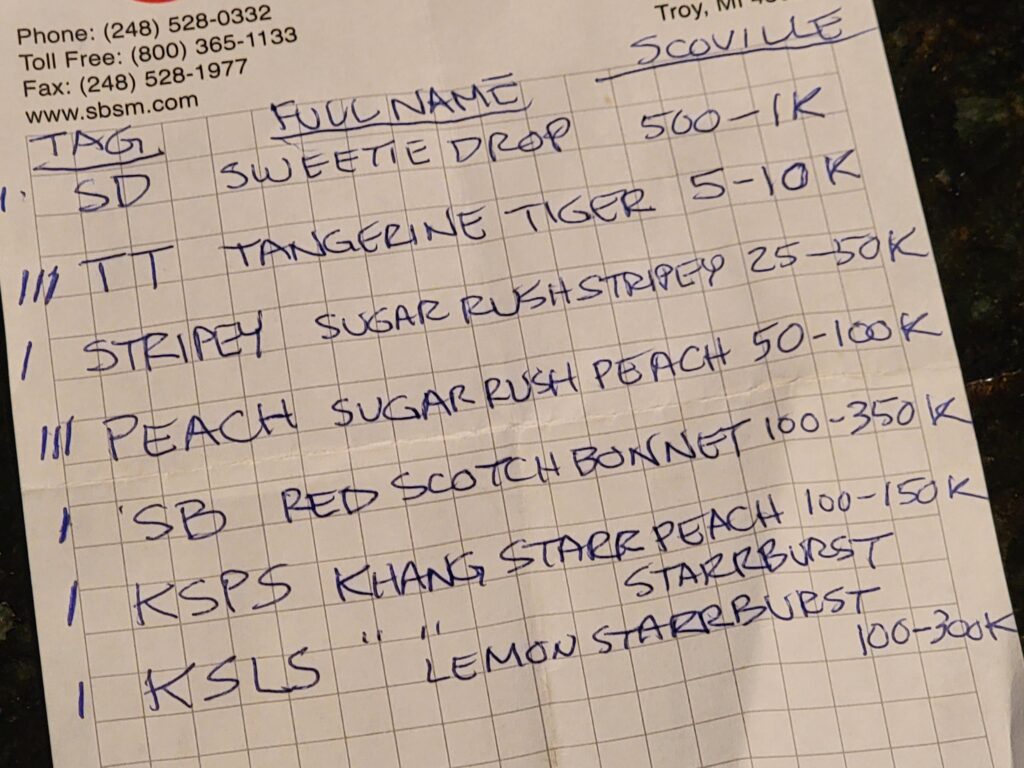 Phone: (248) 528-0332
Toll Free: (800) 365-1133
Fax: (248) 528-1977
www.sbsm.com
Troy, MI
TAG FULL NAME SCOVILLE
1. SD SWEETIE DROP 500-1K
III TT TANGERINE TIGER 5-10K
I STRIPEY SUGAR RUSH STRIPEY 25-50K
III PEACH SUGAR RUSH PEACH 50-100K
I SB RED SCOTCH BONNET 100-350K
I KSPS KHANG STARR PEACH 100-150K
STARRBURST
I KSLS " " LEMON STARRBURST
100-300K